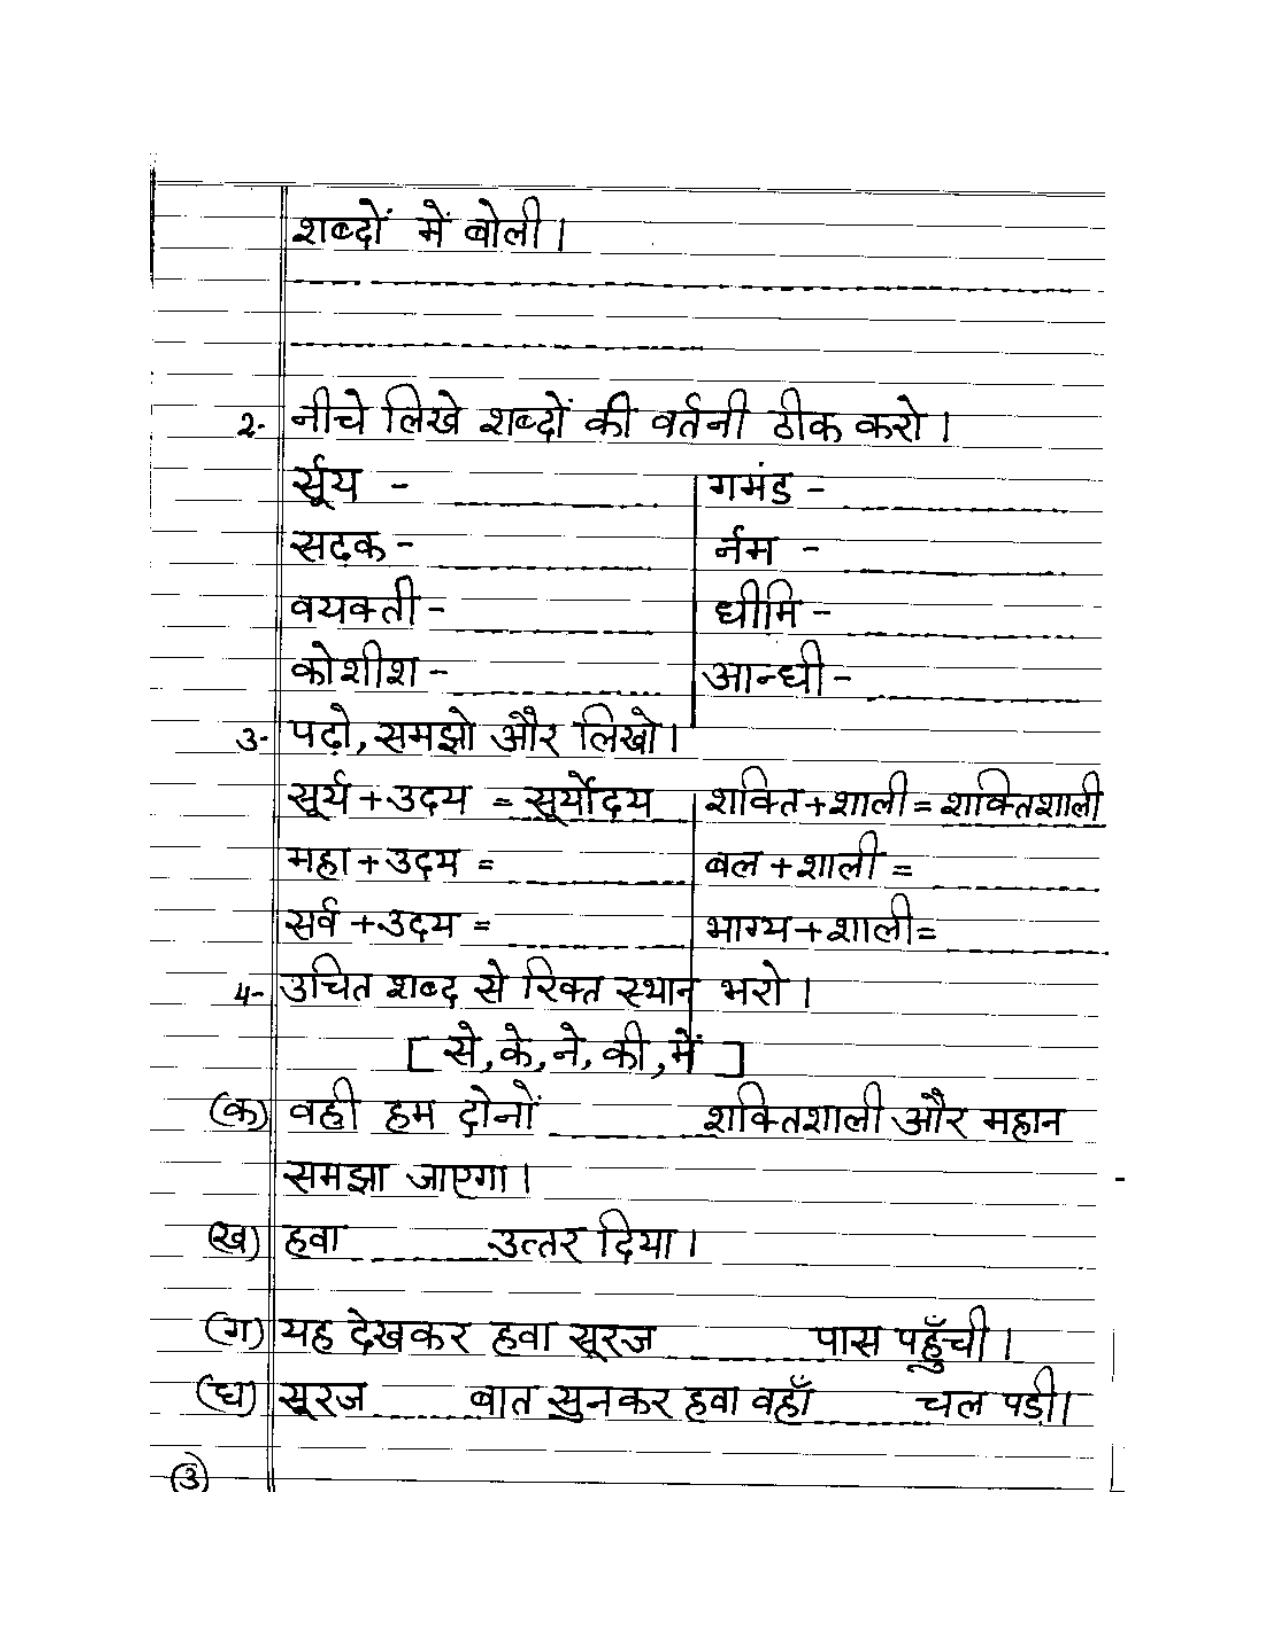 शब्दों में बोली।
2- नीचे लिखे शब्दों की वर्तनी ठीक करो।
र्सूय - गमंड -
सढ़क - र्नम -
वयक्ती - धीमि -
कोशीश - आन्धी -
3- पढ़ो, समझो और लिखो।
सूर्य + उदय = सूर्योदय शक्ति + शाली = शक्तिशाली
महा + उदय = बल + शाली =
सर्व + उदय = भाग्य + शाली =
4- उचित शब्द से रिक्त स्थान भरो।
[ से, के, ने, की, में ]
(क) वही हम दोनों शक्तिशाली और महान
समझा जाएगा।
(ख) हवा उत्तर दिया।
(ग) यह देखकर हवा सूरज पास पहुँची।
(घ) सूरज बात सुनकर हवा वहाँ चल पड़ी।
3